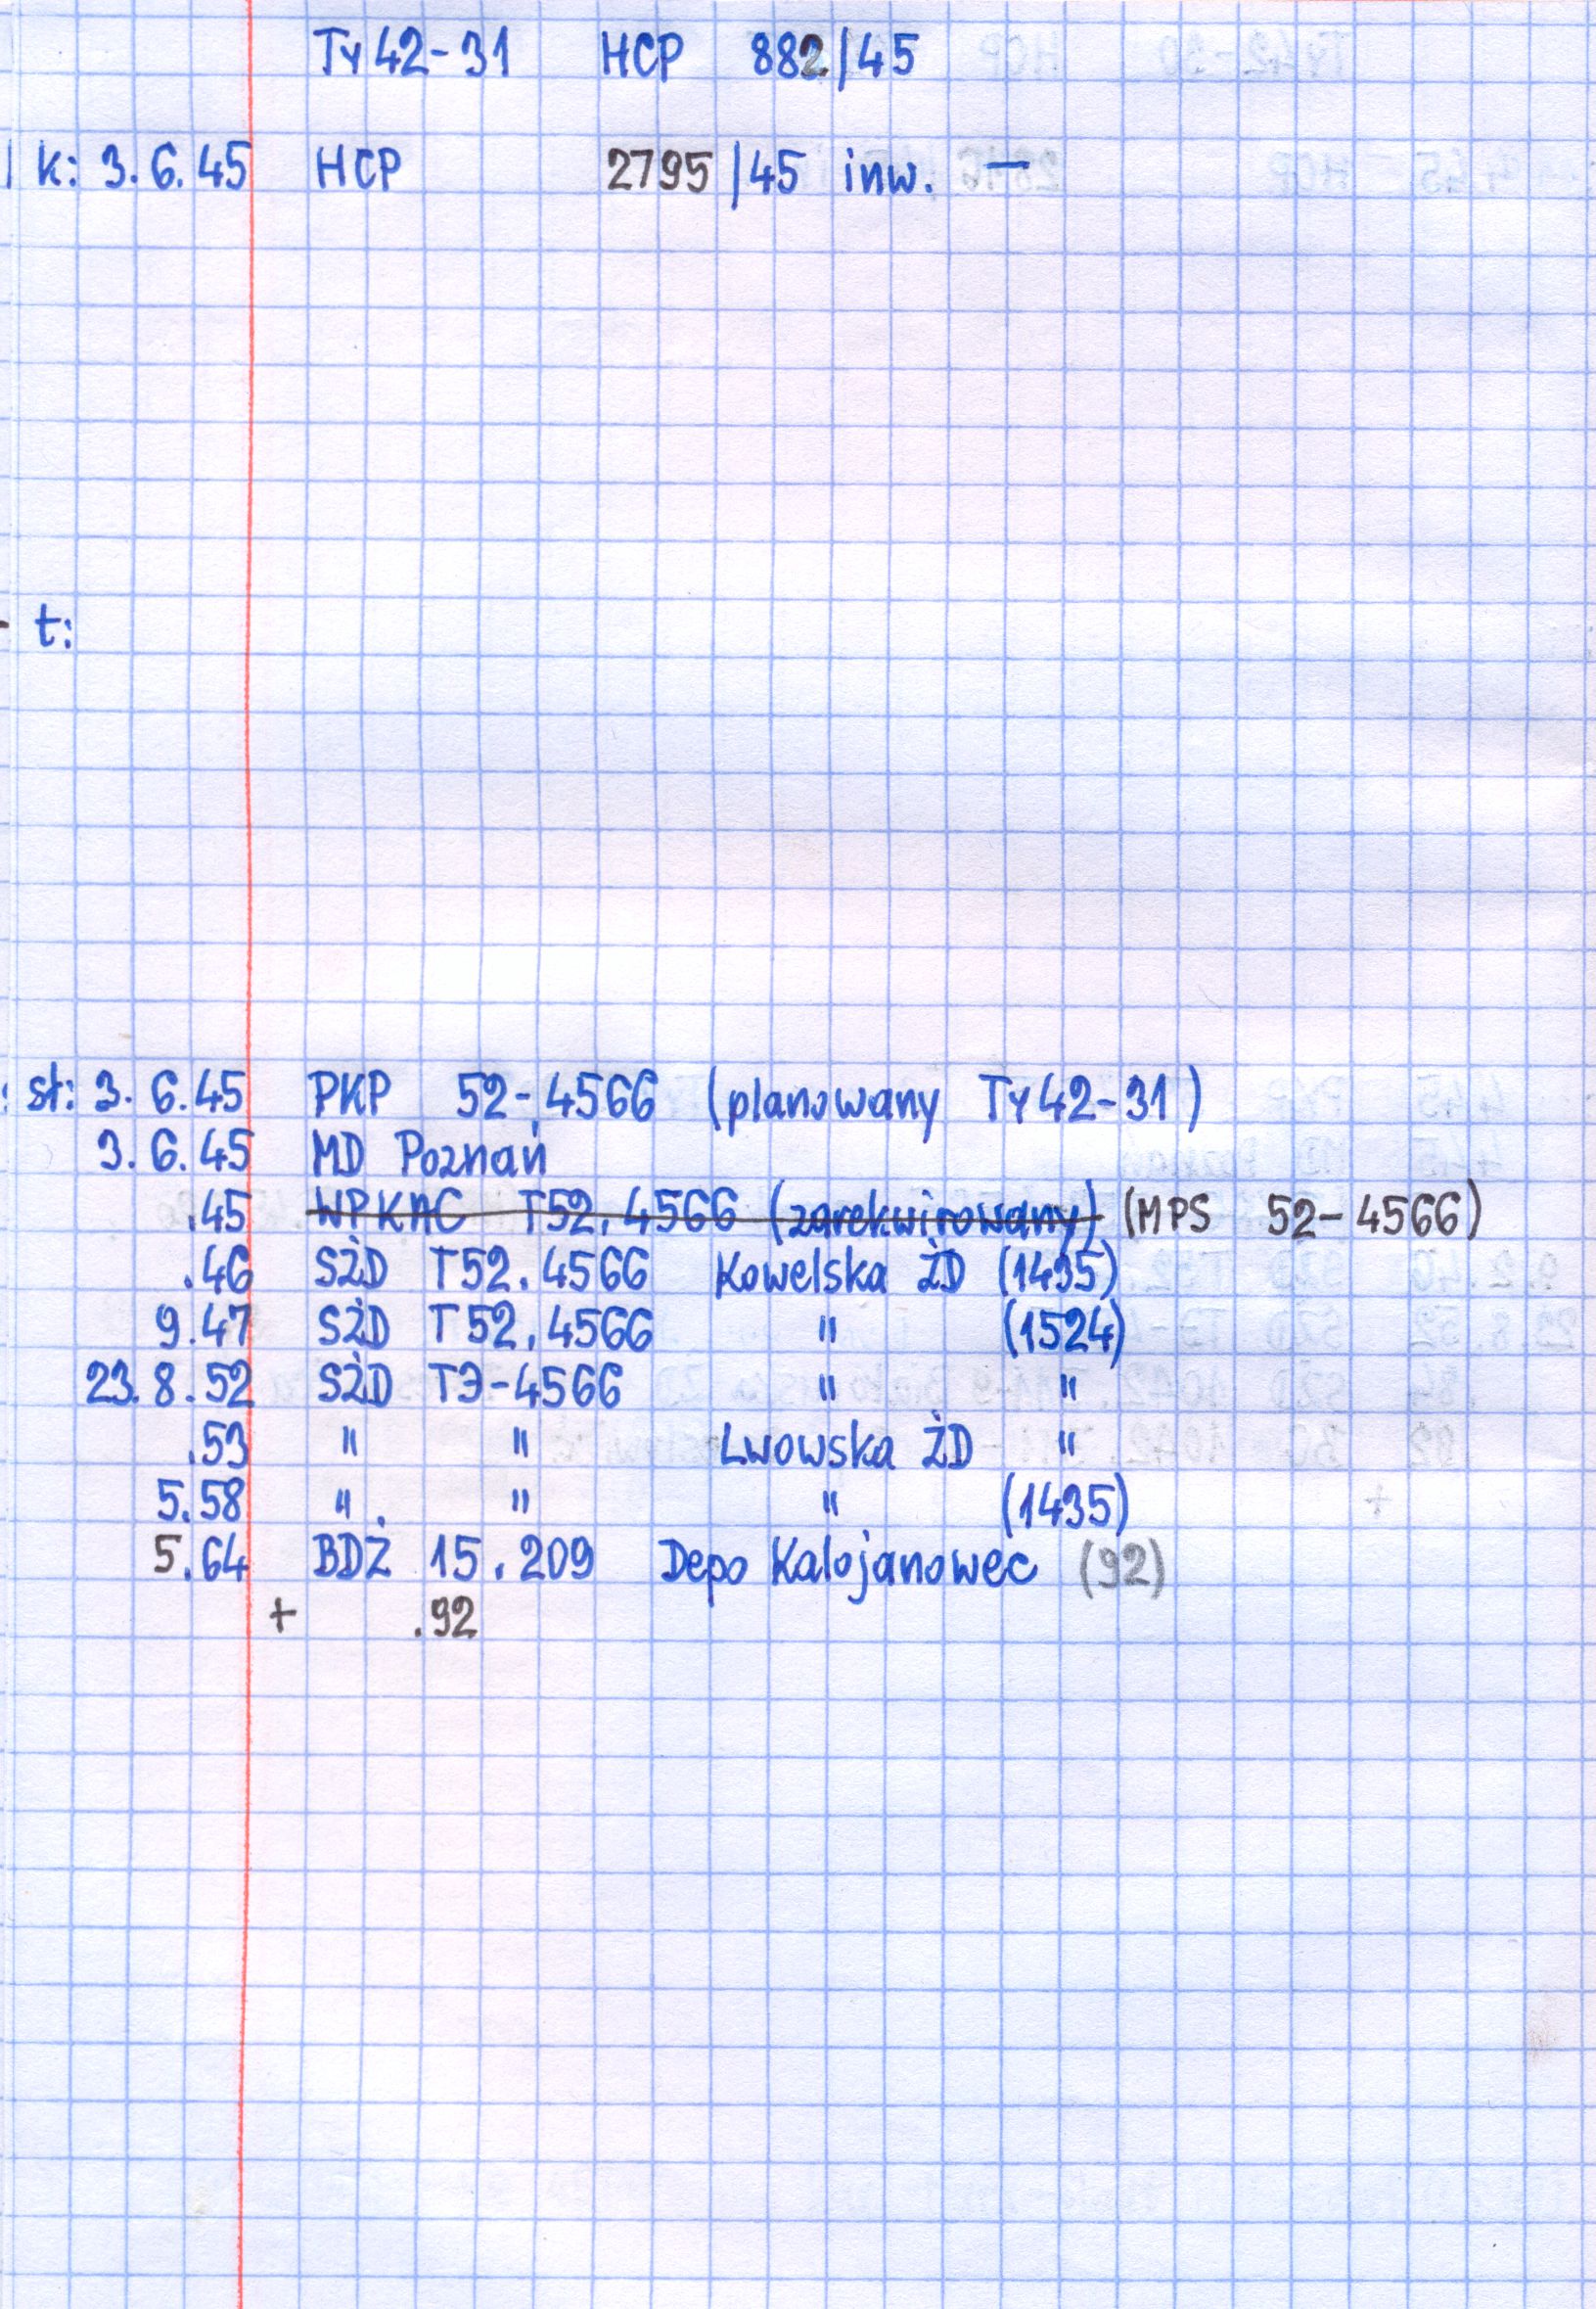 Ty42-31 HCP 882/45
k: 3.6.45 HCP 2795/45 inw. —
t:
st: 3.6.45 PKP 52-4566 (planowany Ty42-31)
3.6.45 MD Poznań
.45 WPKAC T52.4566 (zarekwirowany) (MPS 52-4566)
.46 SŻD T52.4566 Kowelska ŻD (1435)
9.47 SŻD T52.4566 " (1524)
23.8.52 SŻD TЭ-4566 " "
.53 " " Lwowska ŻD "
5.58 " " " (1435)
5.64 BDŻ 15.209 Depo Kalojanowec (92)
+ .92